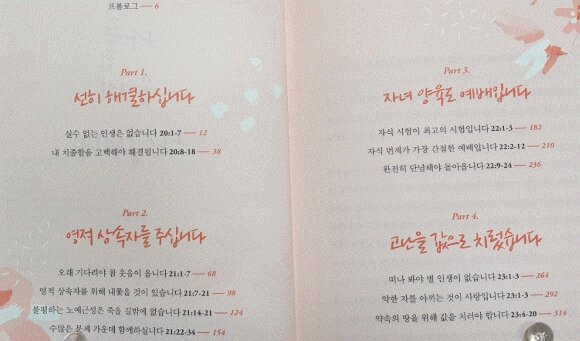 프롤로그 — 6
Part 1.
선히 해결하십니다
실수 없는 인생은 없습니다 20:1-7 — 12
내 치졸함을 고백해야 해결됩니다 20:8-18 — 38
Part 2.
영적 상속자를 주십니다
오래 기다려야 참 웃음이 옵니다 21:1-7 — 68
영적 상속자를 위해 내쫓을 것이 있습니다 21:7-21 — 98
불평하는 노예근성은 죽을 길밖에 없습니다 21:14-21 — 124
수많은 문제 가운데 함께하십니다 21:22-34 — 154
Part 3.
자녀 양육도 예배입니다
자식 시험이 최고의 시험입니다 22:1-3 — 182
자식 번제가 가장 간절한 예배입니다 22:2-12 — 210
완전히 단념해야 돌아옵니다 22:9-24 — 236
Part 4.
고난을 값으로 치렀습니다
떠나 봐야 별 인생이 없습니다 23:1-3 — 264
약한 자를 아끼는 것이 사랑입니다 23:1-3 — 292
약속의 땅을 위해 값을 치러야 합니다 23:4-20 — 314